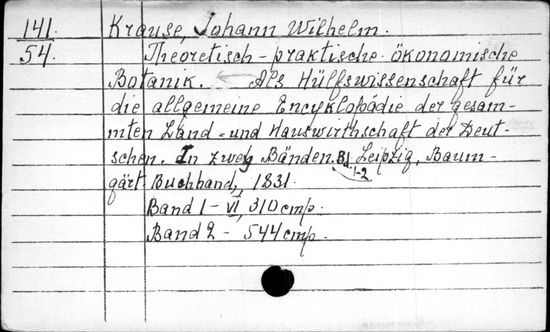 141. Krause, Johann Wilhelm.
54. Theoretisch-praktische ökonomische
Botanik. Als Hülfswissenschaft für
die allgemeine Encyklopädie der gesam-
mten Land- und Hauswirthschaft der Deut-
schen. In zwey Bänden. Bd. 1-2 Leipzig, Baum-
gärt Buchhand, 1831.
Band 1 - VI, 310 cmp.
Band 2 - 544 cmp.